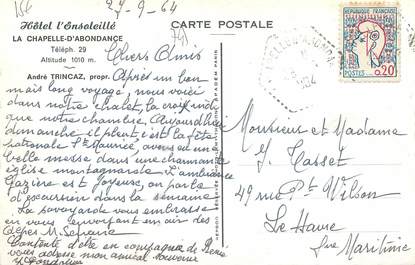 27-9-64
Hôtel l'Ensoleillé
LA CHAPELLE-D'ABONDANCE
Téléph. 29
Altitude 1010 m.
André TRINCAZ, propr.
CARTE POSTALE
REPUBLIQUE FRANÇAISE
POSTES 0,20
Chers Amis
Après un bon
mais long voyage, nous voici
dans notre chalet, la
que notre chambre. Aujourd'hui
dimanche il pleut, c'est la fête
nationale St Maurice, avons eu une
belle messe dans une charmante
église montagnarde. L'ambiance
est joyeuse, on parle
d'excursion dans la semaine
La savoyarde vous embrasse
en vous envoyant un air des
Alpes M.
Contente d'être en compagnie de
vous adresse mon amical souvenir
Monsieur et Madame
Casset
49 rue Pt Wilson
Le Havre
Sne Maritime